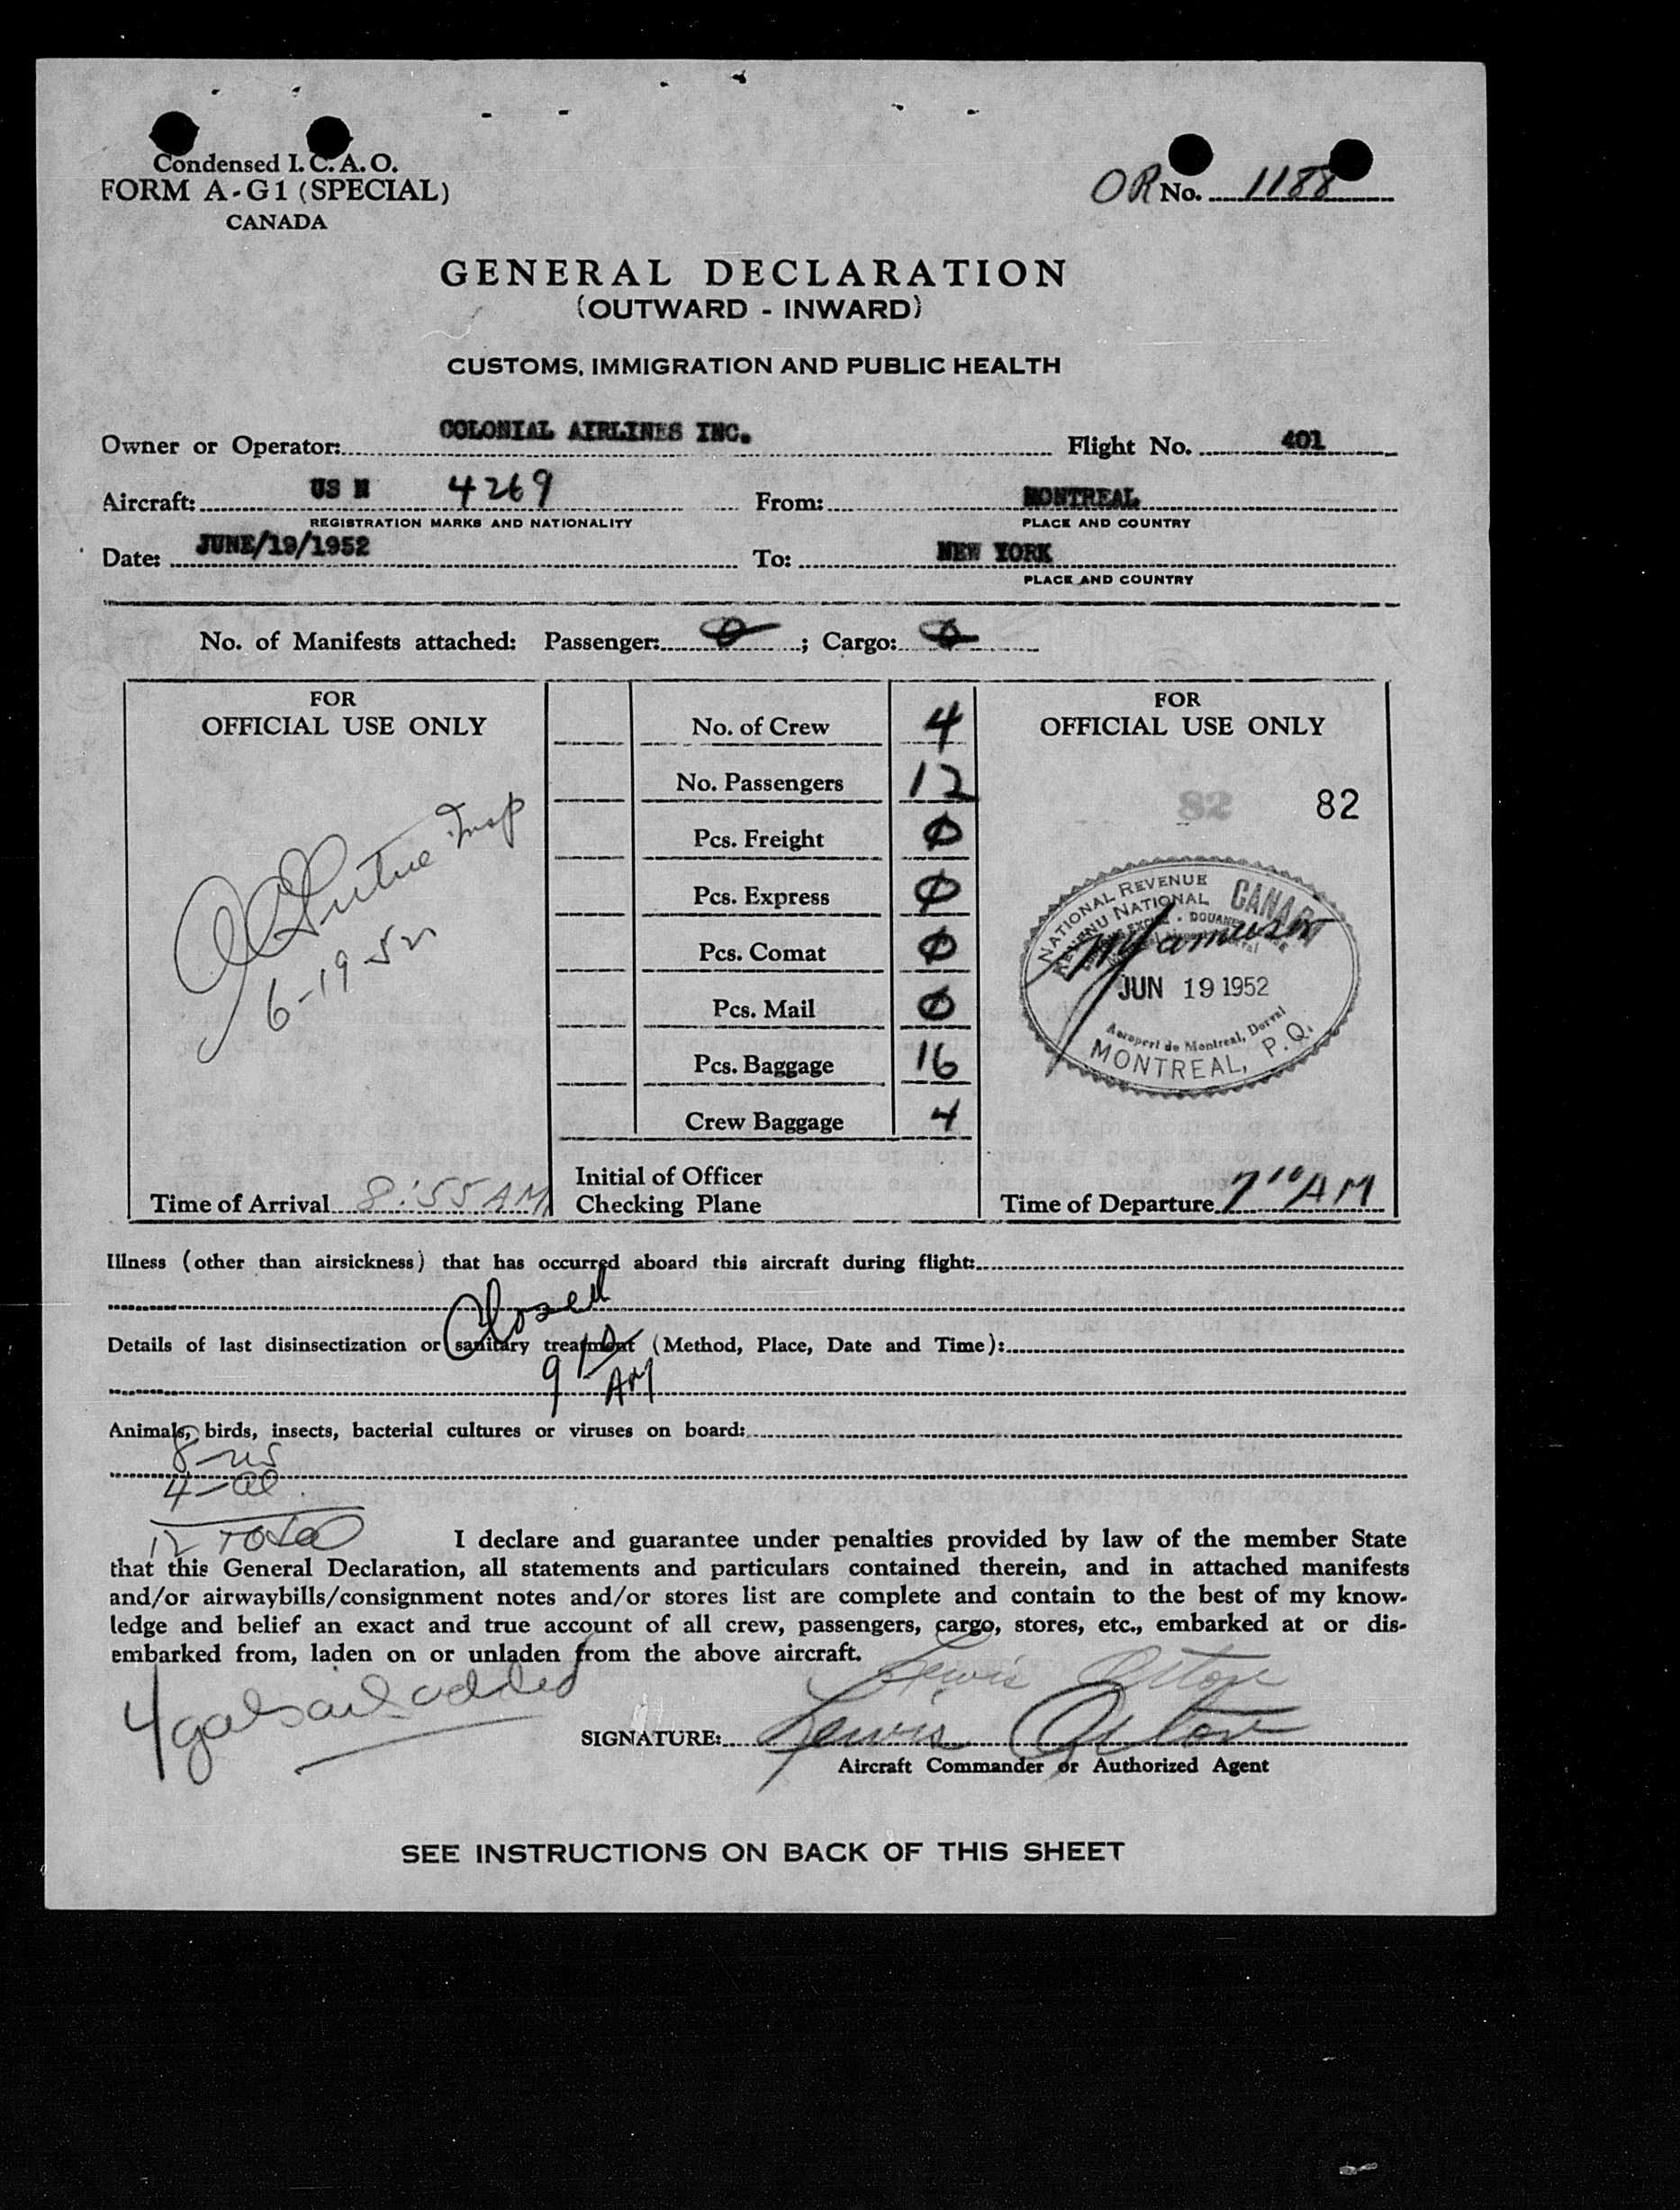 Condensed I. C. A. O.
FORM A-G1 (SPECIAL)
CANADA
OR No. 1188
GENERAL DECLARATION
(OUTWARD - INWARD)
CUSTOMS, IMMIGRATION AND PUBLIC HEALTH
Owner or Operator: COLONIAL AIRLINES INC. Flight No. 401
Aircraft: US N 4269 From: MONTREAL
REGISTRATION MARKS AND NATIONALITY PLACE AND COUNTRY
Date: JUNE/19/1952 To: NEW YORK
PLACE AND COUNTRY
No. of Manifests attached: Passenger: 0 ; Cargo: 0
FOR
OFFICIAL USE ONLY
Insp
6-19-52
Time of Arrival 8:55 AM
No. of Crew 4
No. Passengers 12
Pcs. Freight 0
Pcs. Express 0
Pcs. Comat 0
Pcs. Mail 0
Pcs. Baggage 16
Crew Baggage 4
Initial of Officer
Checking Plane
FOR
OFFICIAL USE ONLY
82 82
NATIONAL REVENUE CANADA
REVENU NATIONAL
JUN 19 1952
Aeroport de Montreal, Dorval
MONTREAL, P.Q.
Time of Departure 7 10 AM
Illness (other than airsickness) that has occurred aboard this aircraft during flight:
Closed
Details of last disinsectization or sanitary treatment (Method, Place, Date and Time):
9 10 AM
Animals, birds, insects, bacterial cultures or viruses on board:
8 - us
4 - al
12 Total
I declare and guarantee under penalties provided by law of the member State
that this General Declaration, all statements and particulars contained therein, and in attached manifests
and/or airwaybills/consignment notes and/or stores list are complete and contain to the best of my know-
ledge and belief an exact and true account of all crew, passengers, cargo, stores, etc., embarked at or dis-
embarked from, laden on or unladen from the above aircraft.
4 gals oil added
Lewis Orton
SIGNATURE: Lewis Orton
Aircraft Commander or Authorized Agent
SEE INSTRUCTIONS ON BACK OF THIS SHEET